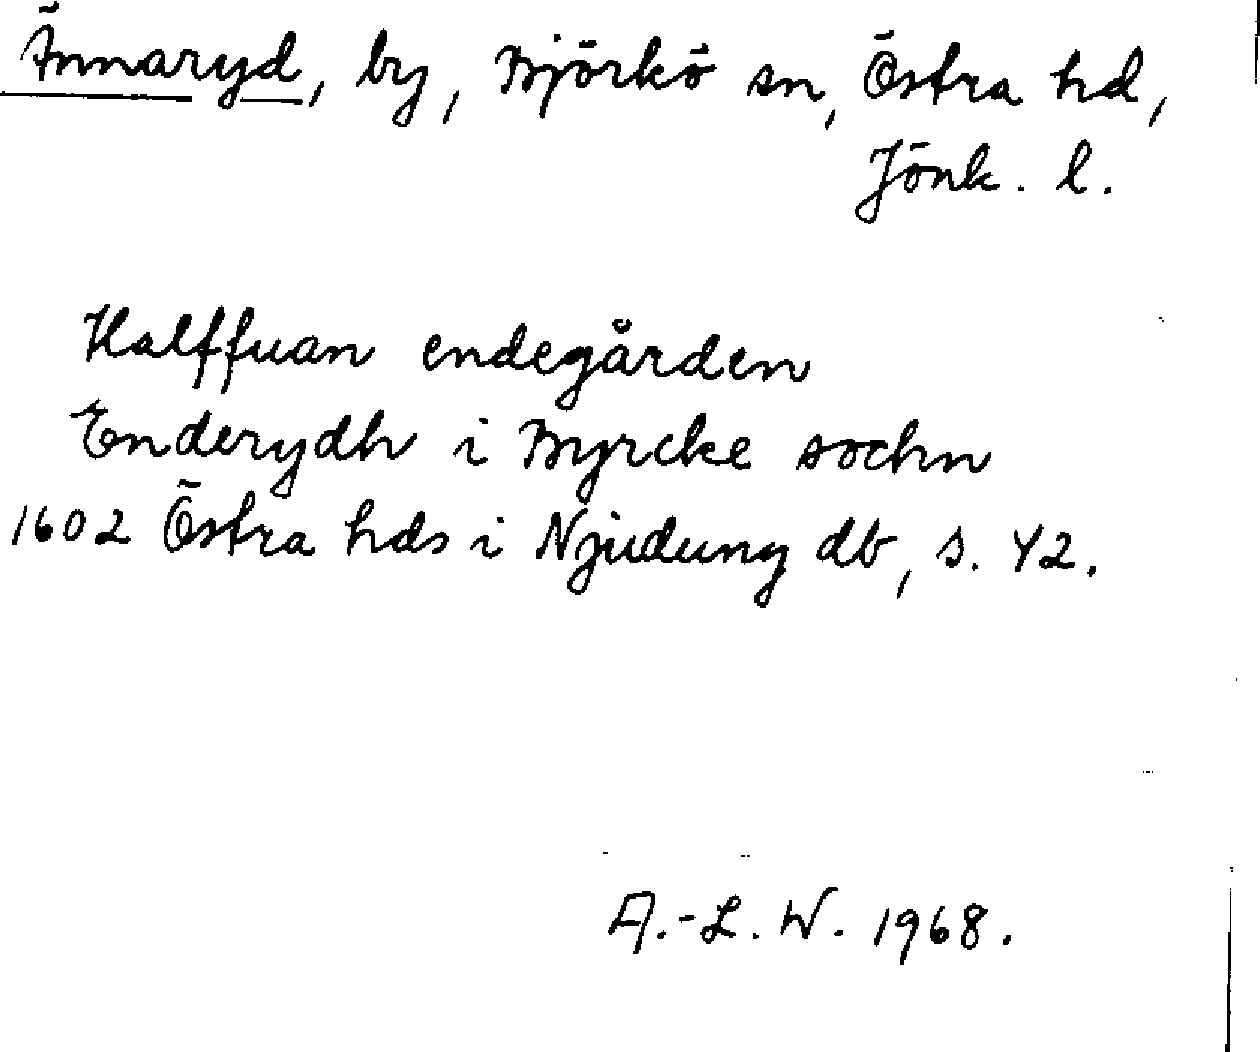 Ännaryd, by, Björkö sn, Östra hd,
Jönk. l.
Halffuan endegården
Enderydh i Byrcke sochn
1602 Östra hds i Njudung db, s. 42.
A.-L. W. 1968.